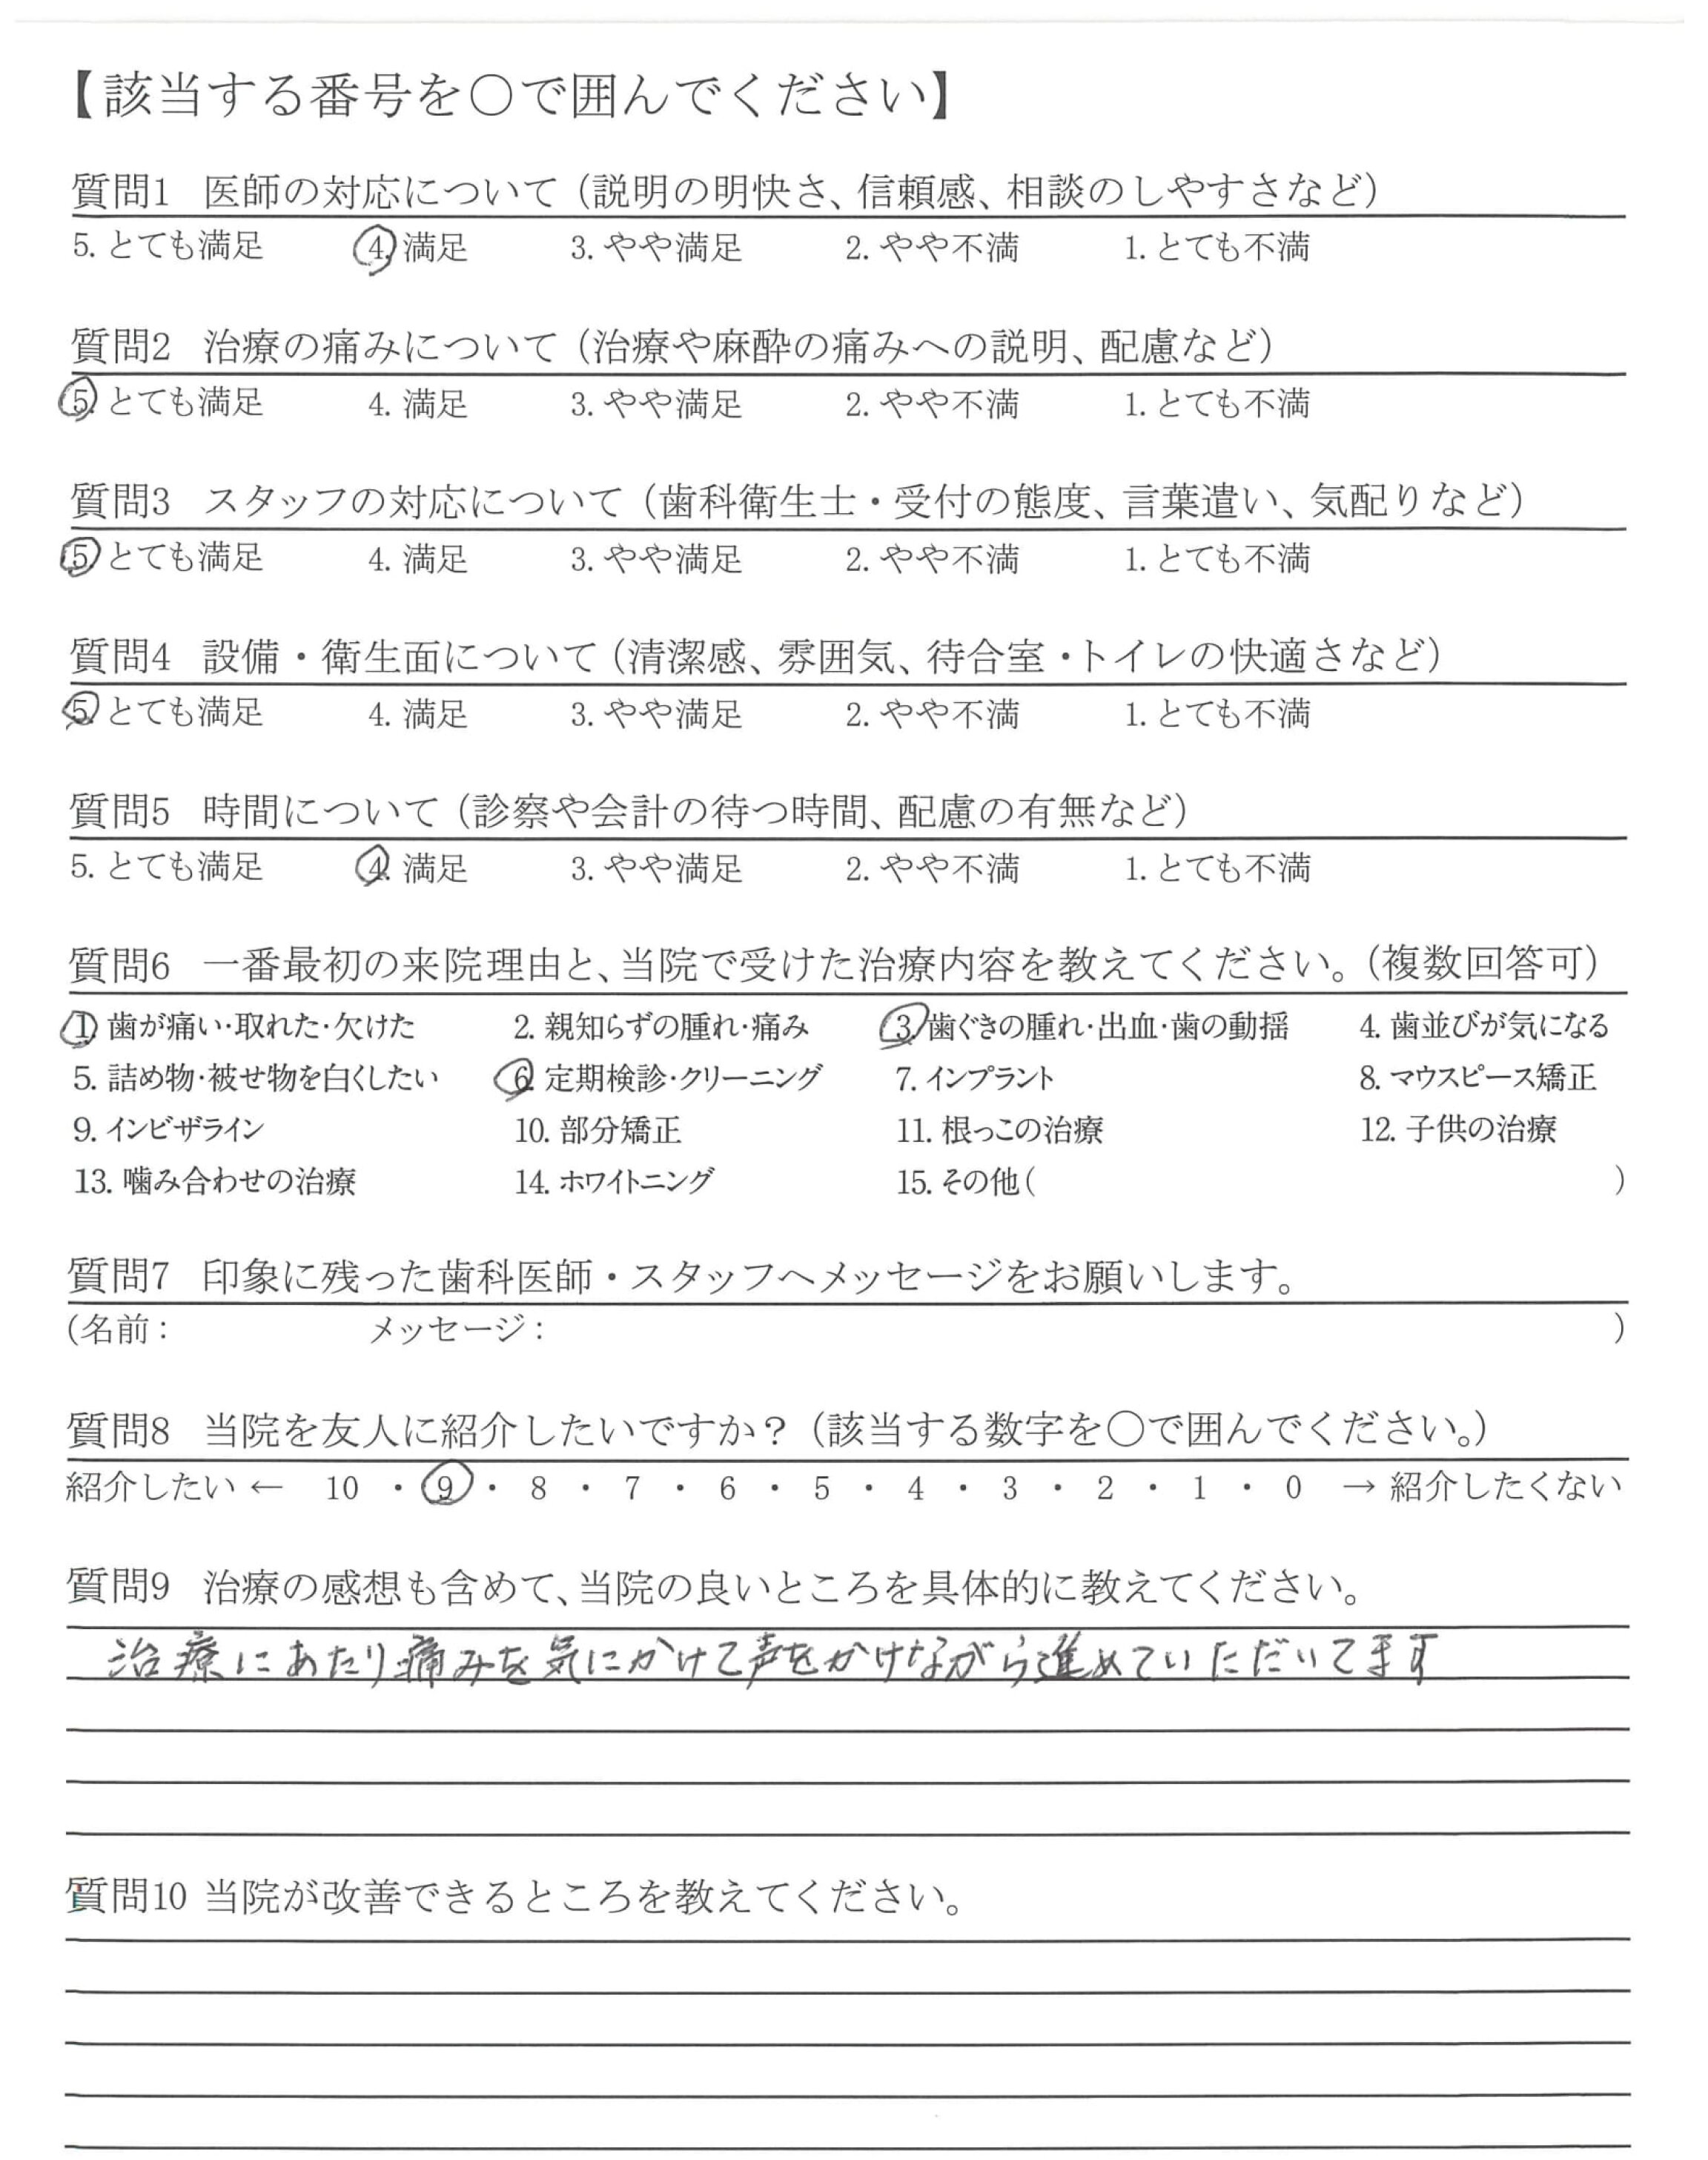 【該当する番号を○で囲んでください】
質問1 医師の対応について（説明の明快さ、信頼感、相談のしやすさなど）
5. とても満足 4. 満足 3. やや満足 2. やや不満 1. とても不満
質問2 治療の痛みについて（治療や麻酔の痛みへの説明、配慮など）
5. とても満足 4. 満足 3. やや満足 2. やや不満 1. とても不満
質問3 スタッフの対応について（歯科衛生士・受付の態度、言葉遣い、気配りなど）
5. とても満足 4. 満足 3. やや満足 2. やや不満 1. とても不満
質問4 設備・衛生面について（清潔感、雰囲気、待合室・トイレの快適さなど）
5. とても満足 4. 満足 3. やや満足 2. やや不満 1. とても不満
質問5 時間について（診察や会計の待つ時間、配慮の有無など）
5. とても満足 4. 満足 3. やや満足 2. やや不満 1. とても不満
質問6 一番最初の来院理由と、当院で受けた治療内容を教えてください。（複数回答可）
1. 歯が痛い・取れた・欠けた 2. 親知らずの腫れ・痛み 3. 歯ぐきの腫れ・出血・歯の動揺 4. 歯並びが気になる
5. 詰め物・被せ物を白くしたい 6. 定期検診・クリーニング 7. インプラント 8. マウスピース矯正
9. インビザライン 10. 部分矯正 11. 根っこの治療 12. 子供の治療
13. 噛み合わせの治療 14. ホワイトニング 15. その他（ ）
質問7 印象に残った歯科医師・スタッフへメッセージをお願いします。
（名前： メッセージ： ）
質問8 当院を友人に紹介したいですか？（該当する数字を○で囲んでください。）
紹介したい ← 10 ・ 9 ・ 8 ・ 7 ・ 6 ・ 5 ・ 4 ・ 3 ・ 2 ・ 1 ・ 0 → 紹介したくない
質問9 治療の感想も含めて、当院の良いところを具体的に教えてください。
治療にあたり痛みを気にかけて声をかけながら進めていただいてます
質問10 当院が改善できるところを教えてください。